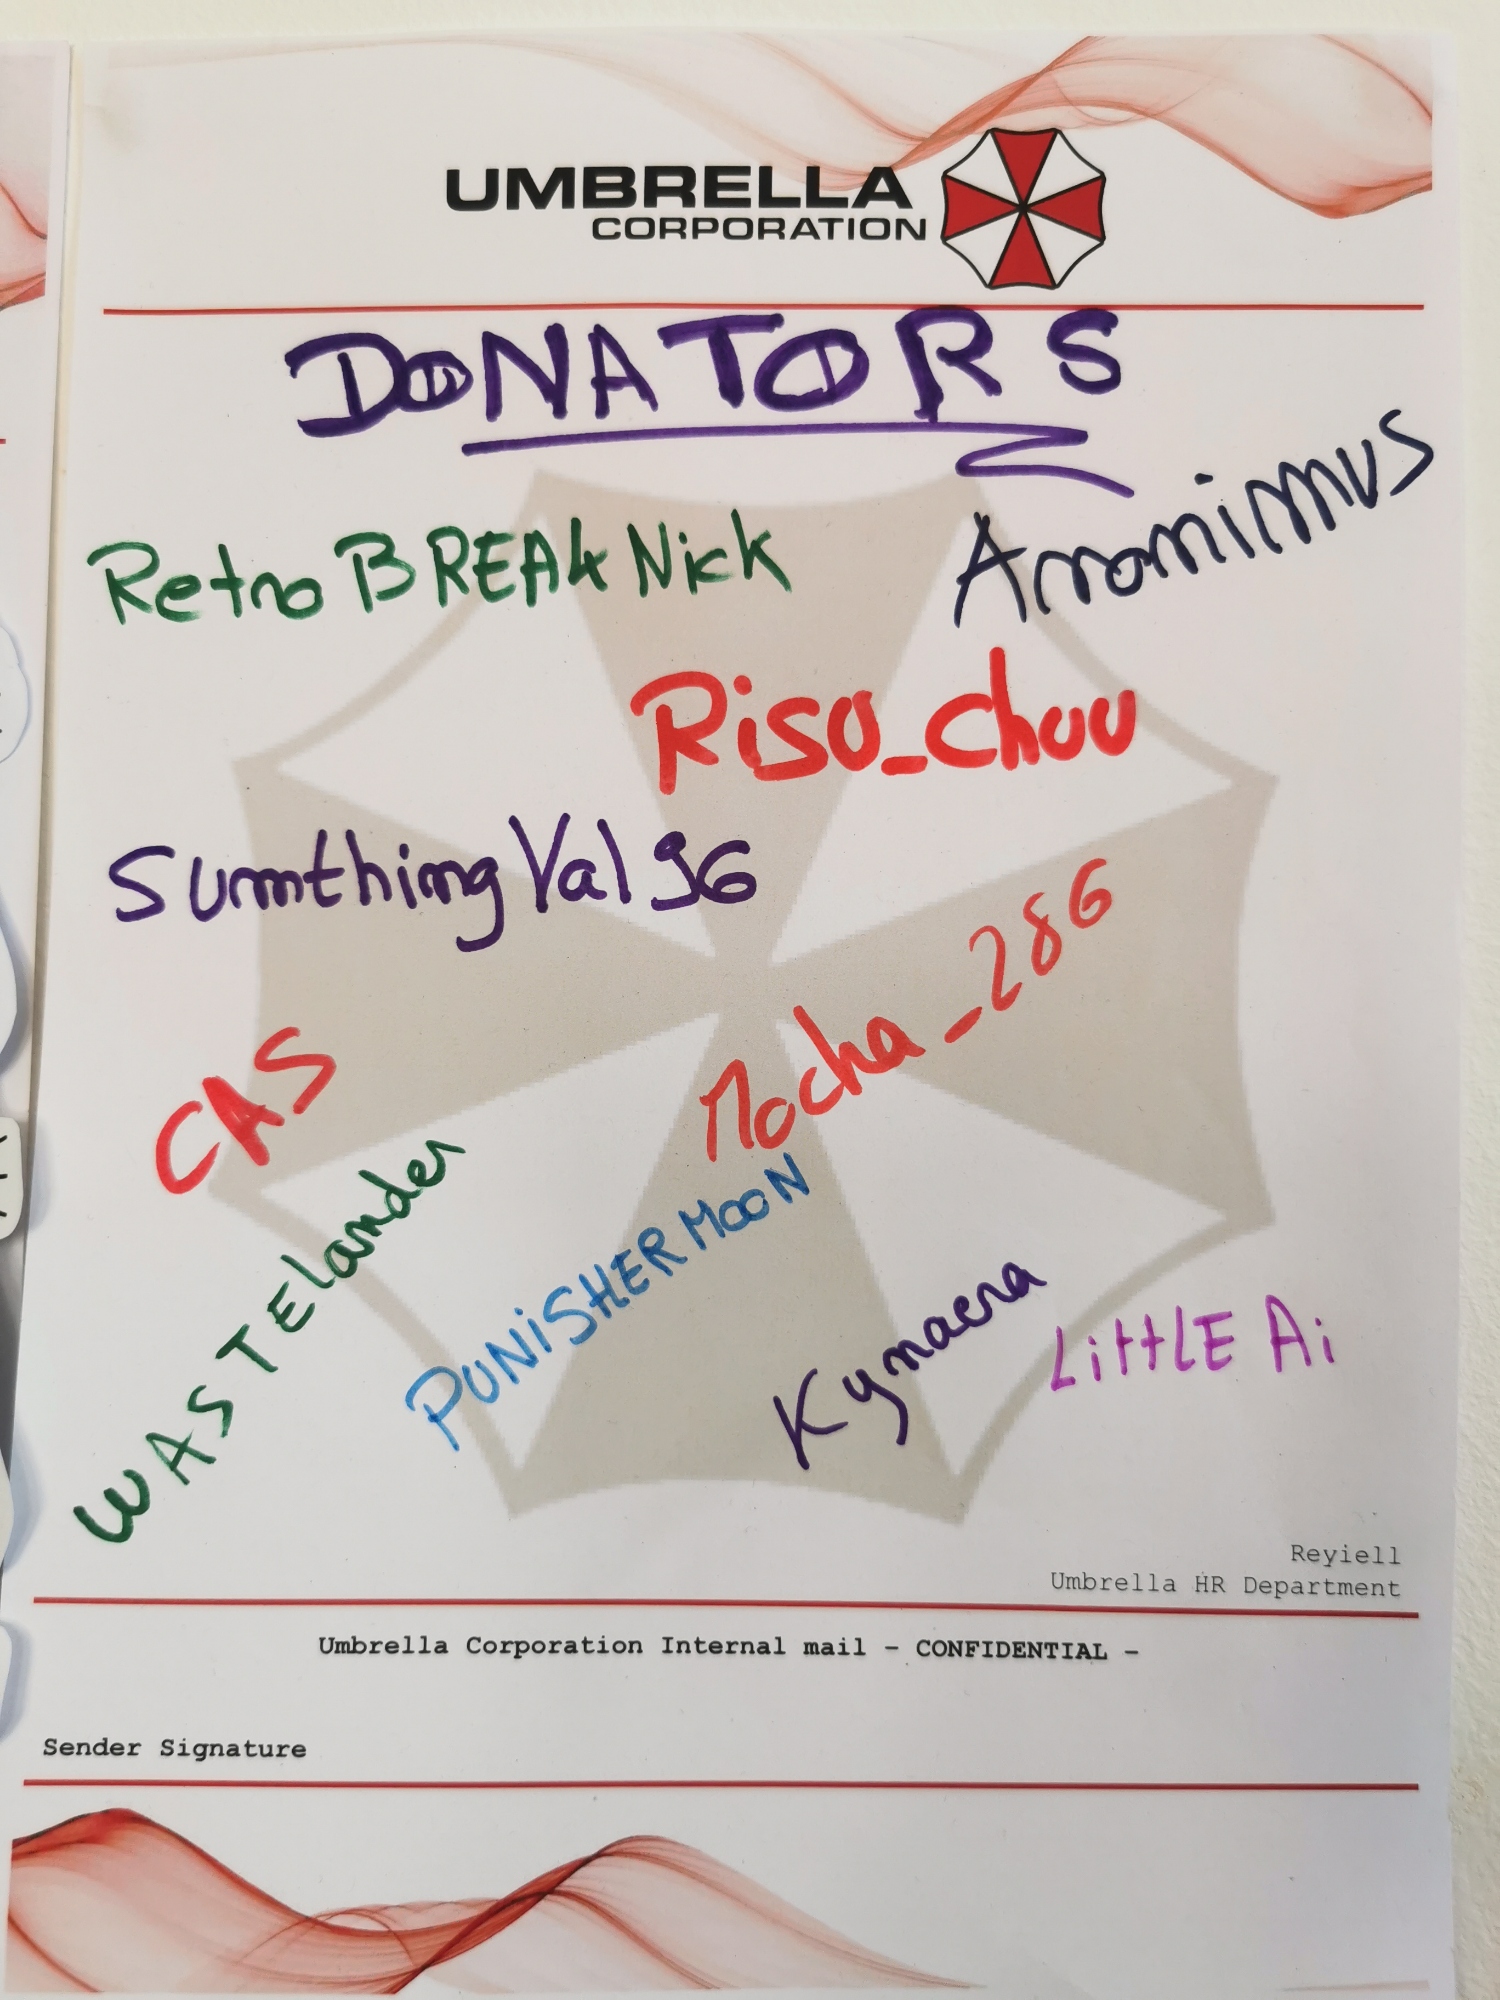 UMBRELLA
CORPORATION
DONATORS
Anonimus
Retro BREAK Nick
Risu_chuu
SumthingVal96
Mocha_286
CAS
WASTElander
PUNiSHER MOON
Kynaera
LittLE Ai
Reyiell
Umbrella HR Department
Umbrella Corporation Internal mail - CONFIDENTIAL -
Sender Signature